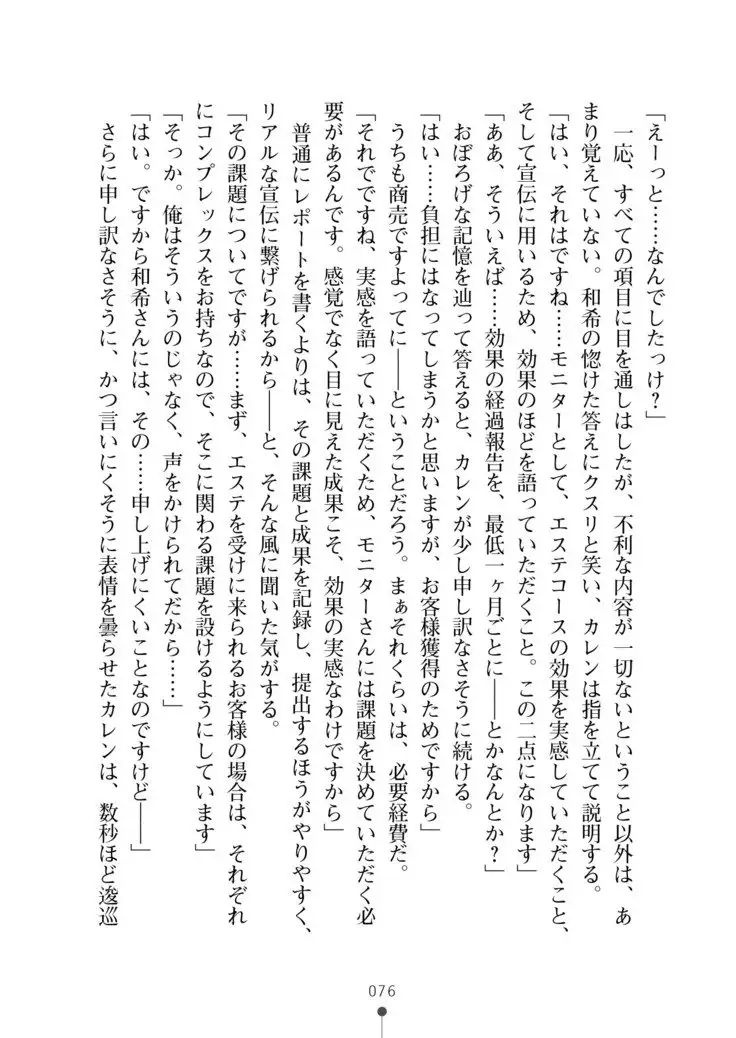 「えーっと……なんでしたっけ？」
　一応、すべての項目に目を通しはしたが、不利な内容が一切ないということ以外は、あ
まり覚えていない。和希の惚けた答えにクスリと笑い、カレンは指を立てて説明する。
「はい、それはですね……モニターとして、エステコースの効果を実感していただくこと、
そして宣伝に用いるため、効果のほどを語っていただくこと。この二点になります」
「ああ、そういえば……効果の経過報告を、最低一ヶ月ごとに――とかなんとか？」
　おぼろげな記憶を辿って答えると、カレンが少し申し訳なさそうに続ける。
「はい……負担にはなってしまうかと思いますが、お客様獲得のためですから」
　うちも商売ですよってに――ということだろう。まぁそれくらいは、必要経費だ。
「それでですね、実感を語っていただくため、モニターさんには課題を決めていただく必
要があるんです。感覚でなく目に見えた成果こそ、効果の実感なわけですから」
　普通にレポートを書くよりは、その課題と成果を記録し、提出するほうがやりやすく、
リアルな宣伝に繋げられるから――と、そんな風に聞いた気がする。
「その課題についてですが……まず、エステを受けに来られるお客様の場合は、それぞれ
にコンプレックスをお持ちなので、そこに関わる課題を設けるようにしています」
「そっか。俺はそういうのじゃなく、声をかけられてだから……」
「はい。ですから和希さんには、その……申し上げにくいことなのですけど――」
　さらに申し訳なさそうに、かつ言いにくそうに表情を曇らせたカレンは、数秒ほど逡巡
076